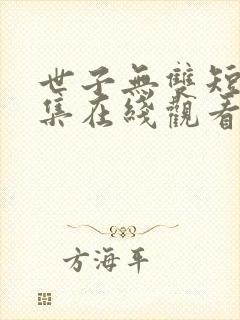 世子無雙短
集在綫觀看
方海平